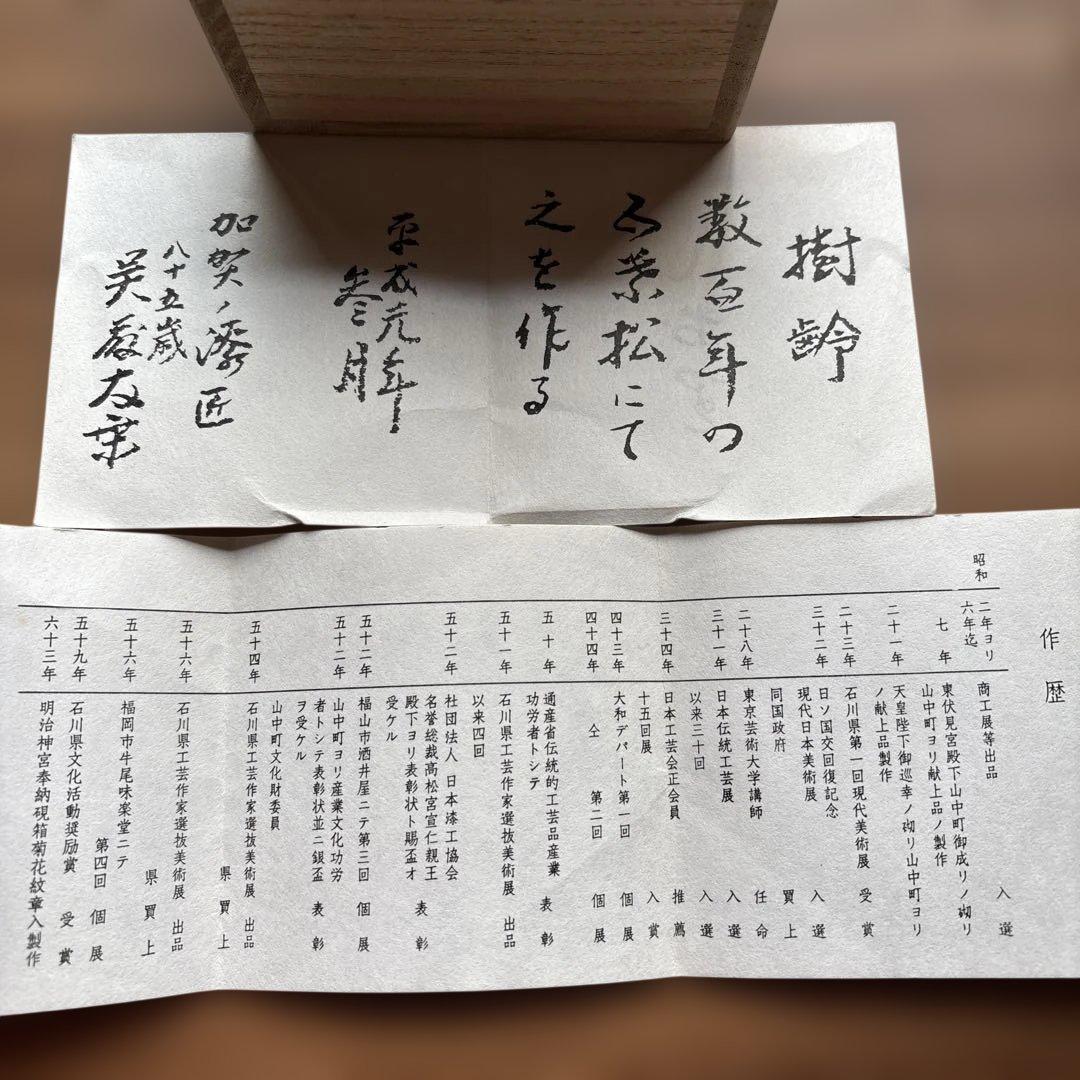 樹齢
数百年の
五葉松にて
之を作る
平成元年
参月
加賀ノ漆匠
八十五歳
呉藤友乗
作歴
昭和
二年ヨリ
六年迄
商工展等出品
入選
七年
東伏見宮殿下山中町御成リノ砌リ
山中町ヨリ献上品ノ製作
二十一年
天皇陛下御巡幸ノ砌リ山中町ヨリ
ノ献上品製作
二十三年
石川県第一回現代美術展
受賞
三十二年
日ソ国交回復記念
現代日本美術展
入選
同国政府
買上
二十八年
東京芸術大学講師
任命
三十一年
日本伝統工芸展
入選
以来三十回
入選
三十四年
日本工芸会正会員
推薦
十五回展
入賞
四十三年
大和デパート第一回
個展
四十四年
仝 第二回
個展
五十年
通産省伝統的工芸品産業
功労者トシテ
表彰
五十一年
石川県工芸作家選抜美術展
出品
以来四回
五十二年
社団法人 日本漆工協会
名誉総裁高松宮宣仁親王
殿下ヨリ表彰状ト賜盃オ
受ケル
表彰
五十二年
福山市酒井屋ニテ第三回
個展
五十二年
山中町ヨリ産業文化功労
者トシテ表彰状並ニ銀盃
ヲ受ケル
表彰
山中町文化財委員
五十四年
石川県工芸作家選抜美術展
出品
県買上
五十六年
石川県工芸作家選抜美術展
出品
県買上
五十六年
福岡市牛尾味楽堂ニテ
第四回
個展
五十九年
石川県文化活動奨励賞
受賞
六十三年
明治神宮奉納硯箱菊花紋章入製作